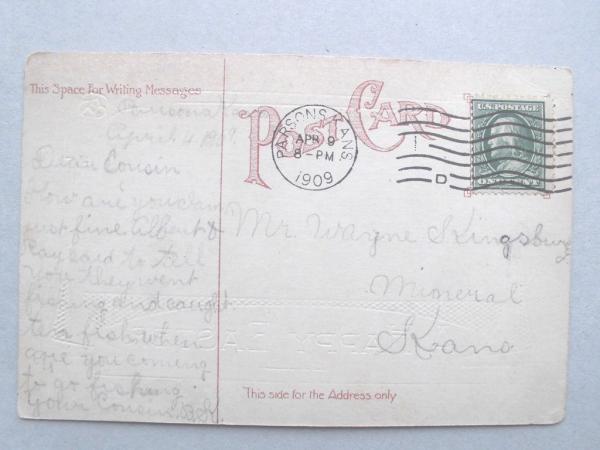 This Space For Writing Messages
POST CARD
PARSONS, KANS.
APR 9
8-PM
1909
D
U.S. POSTAGE
ONE CENT
Parsons
April 4 1909
Dear Cousin
How are you I am
just fine Albert &
Ray said to tell
you they went
fishing and caught
ten fish when
are you coming
to go fishing.
Your Cousin
Mr. Wayne Kingsbury
Mineral
Kans
HAPPY EASTER
This side for the Address only